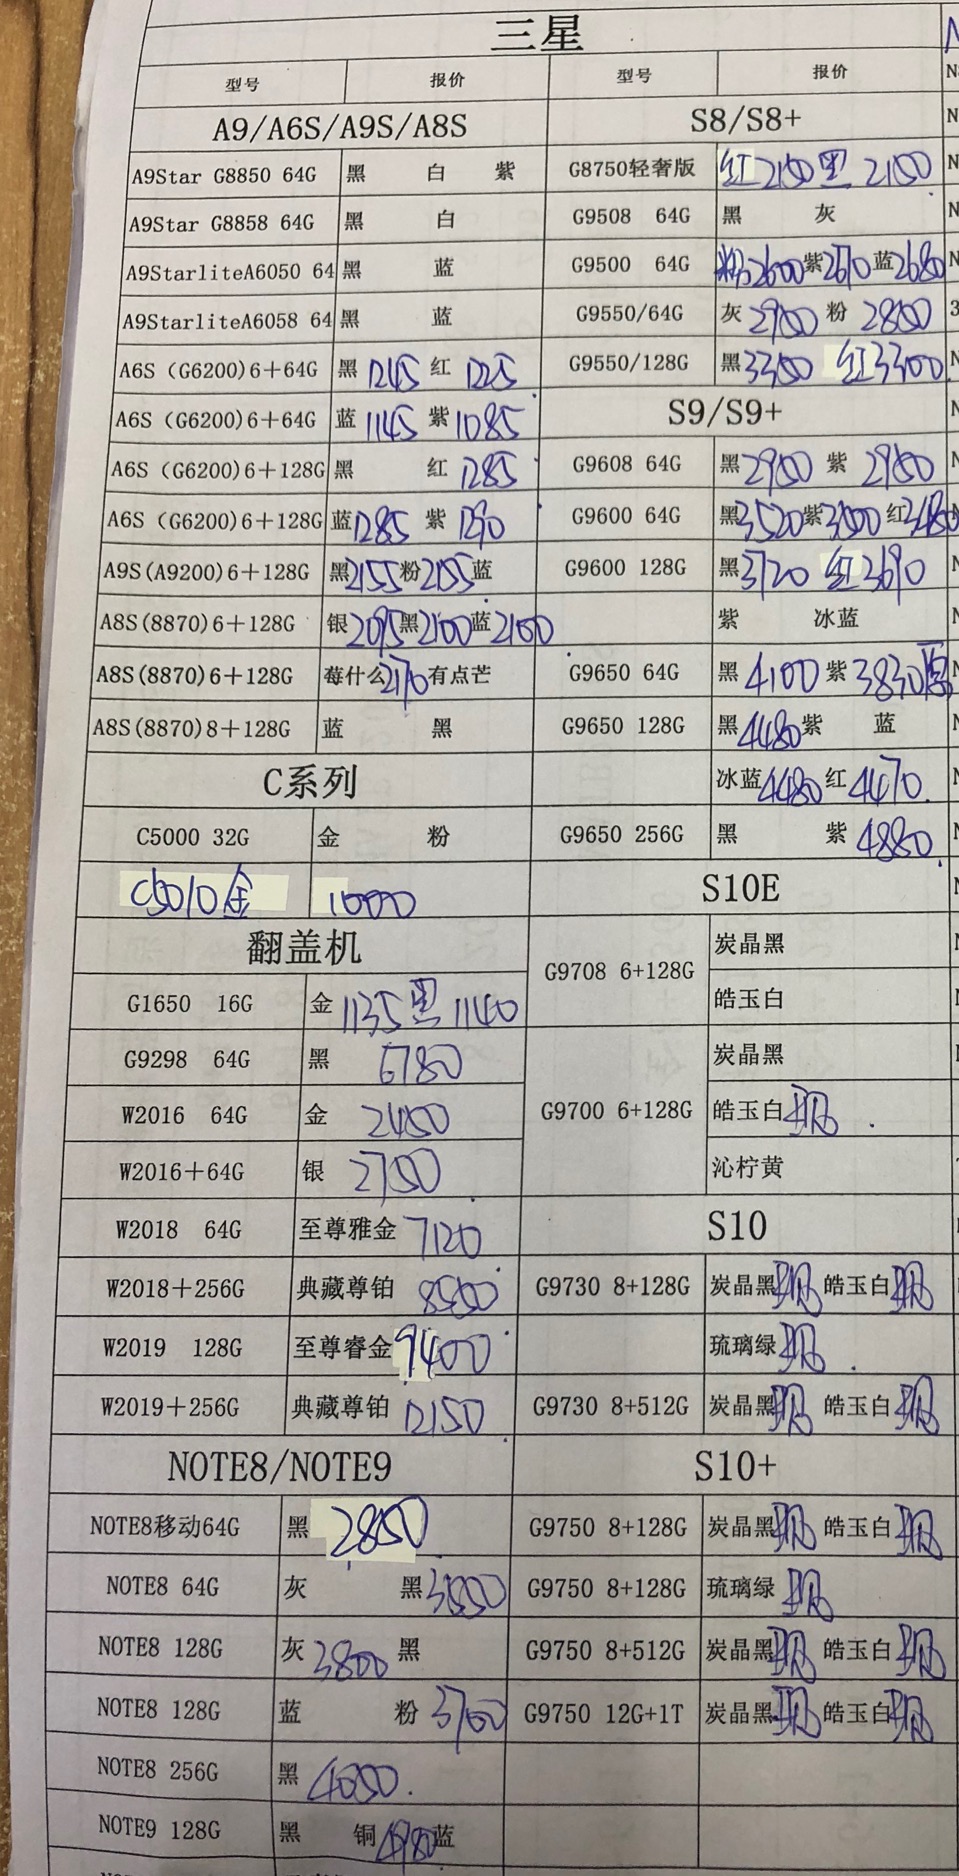 三星
型号 报价 型号 报价
A9/A6S/A9S/A8S S8/S8+
A9Star G8850 64G 黑 白 紫 G8750轻奢版 红2150黑 2150
A9Star G8858 64G 黑 白 G9508 64G 黑 灰
A9StarliteA6050 64 黑 蓝 G9500 64G 粉2600紫2670蓝2680
A9StarliteA6058 64 黑 蓝 G9550/64G 灰2900 粉 2800
A6S (G6200)6+64G 黑 1245 红 1225 G9550/128G 黑3300 红3300
A6S (G6200)6+64G 蓝 1145 紫1085 S9/S9+
A6S (G6200)6+128G 黑 红 1285 G9608 64G 黑2950 紫 2950
A6S (G6200)6+128G 蓝1285 紫 1290 G9600 64G 黑3520紫3500 红3480
A9S(A9200)6+128G 黑2155粉2155蓝 G9600 128G 黑3720 红3690
A8S(8870)6+128G 银2095黑2100蓝2100 紫 冰蓝
A8S(8870)6+128G 莓什么2170有点芒 G9650 64G 黑 4100 紫 3830
A8S(8870)8+128G 蓝 黑 G9650 128G 黑4480紫 蓝
C系列 冰蓝4480红4470
C5000 32G 金 粉 G9650 256G 黑 紫 4880
C5010金 1000 S10E
翻盖机 G9708 6+128G 炭晶黑
G1650 16G 金 1135黑 1140 皓玉白
G9298 64G 黑 6780 炭晶黑
W2016 64G 金 2450 G9700 6+128G 皓玉白
W2016+64G 银 2750 沁柠黄
W2018 64G 至尊雅金 7120 S10
W2018+256G 典藏尊铂 8550 G9730 8+128G 炭晶黑 皓玉白
W2019 128G 至尊睿金9400 琉璃绿
W2019+256G 典藏尊铂 12150 G9730 8+512G 炭晶黑 皓玉白
NOTE8/NOTE9 S10+
NOTE8移动64G 黑 2850 G9750 8+128G 炭晶黑 皓玉白
NOTE8 64G 灰 黑3550 G9750 8+128G 琉璃绿
NOTE8 128G 灰 3800 黑 G9750 8+512G 炭晶黑 皓玉白
NOTE8 128G 蓝 粉 3700 G9750 12G+1T 炭晶黑 皓玉白
NOTE8 256G 黑 4050
NOTE9 128G 黑 铜4980蓝